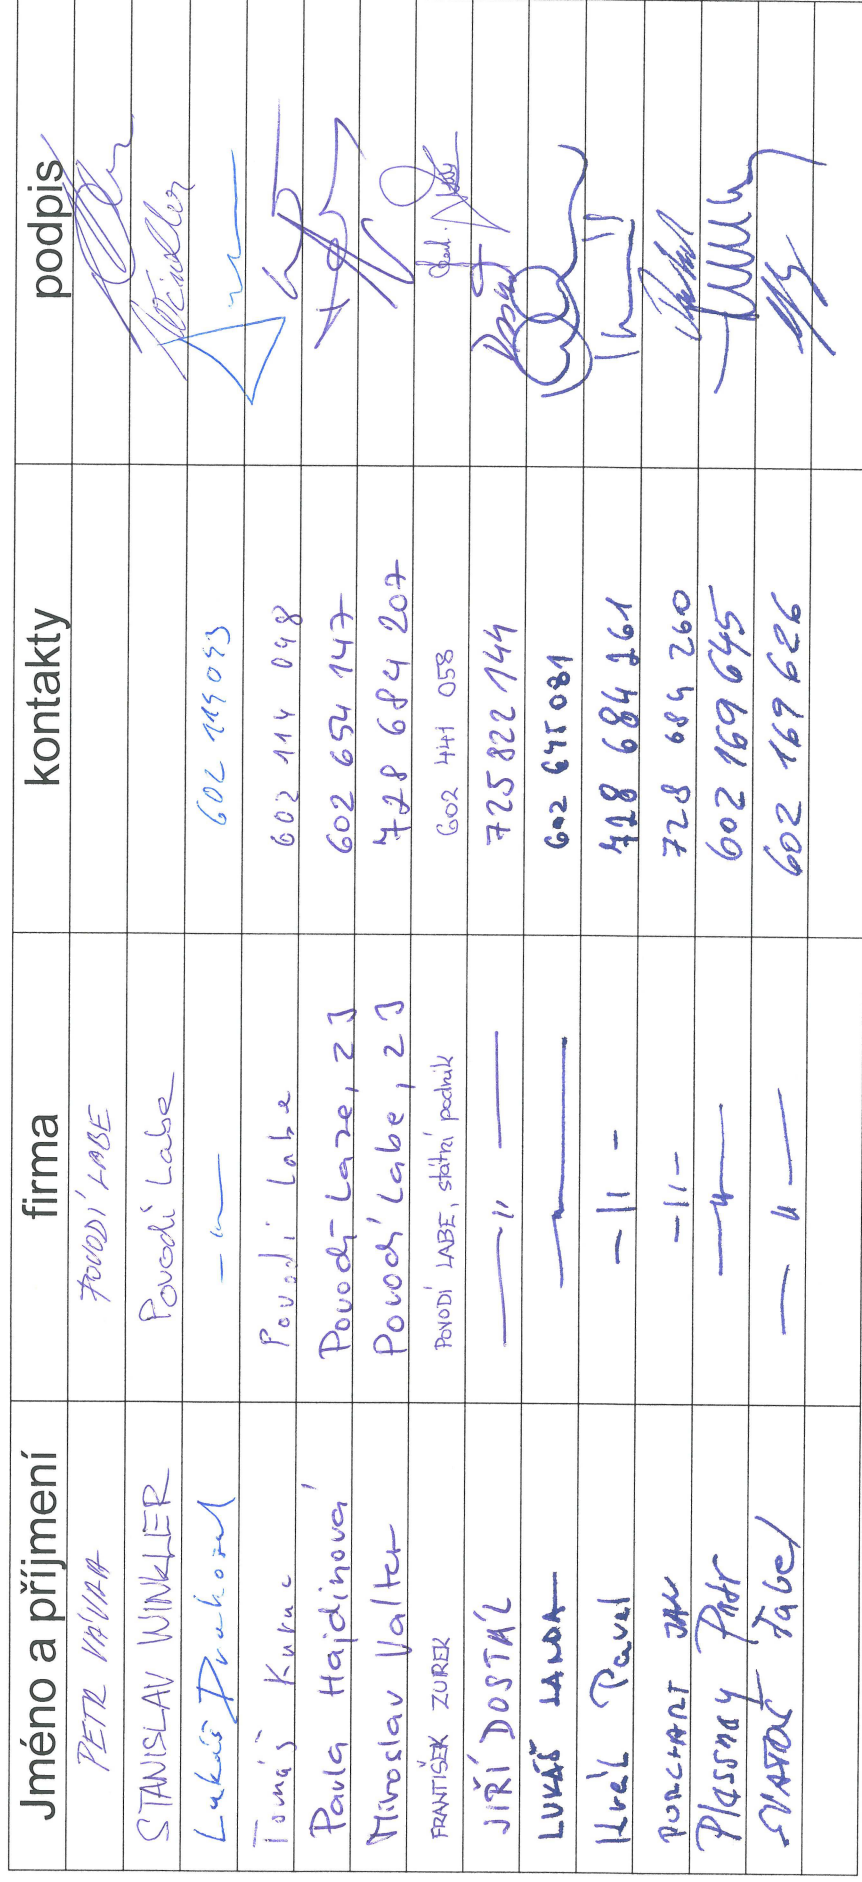 Jméno a příjmení firma kontakty podpis
PETR VÁVRA POVODÍ LABE
STANISLAV WINKLER Povodí Labe
Lukáš Drahozal -"- 602 114 093
Tomáš Povodí Labe 602 114 048
Pavla Hajdinová Povodí Labe, Z3 602 654 147
Miroslav Valter Povodí Labe, Z3 728 684 207
FRANTIŠEK ZUREK POVODÍ LABE, státní podnik 602 441 058
JIŘÍ DOSTÁL -"- 725 822 144
LUKÁŠ LANDA -"- 602 645 081
Král Pavel -"- 728 684 261
PURCHART JAN -"- 728 684 260
Petr -"- 602 169 645
-"- 602 169 626